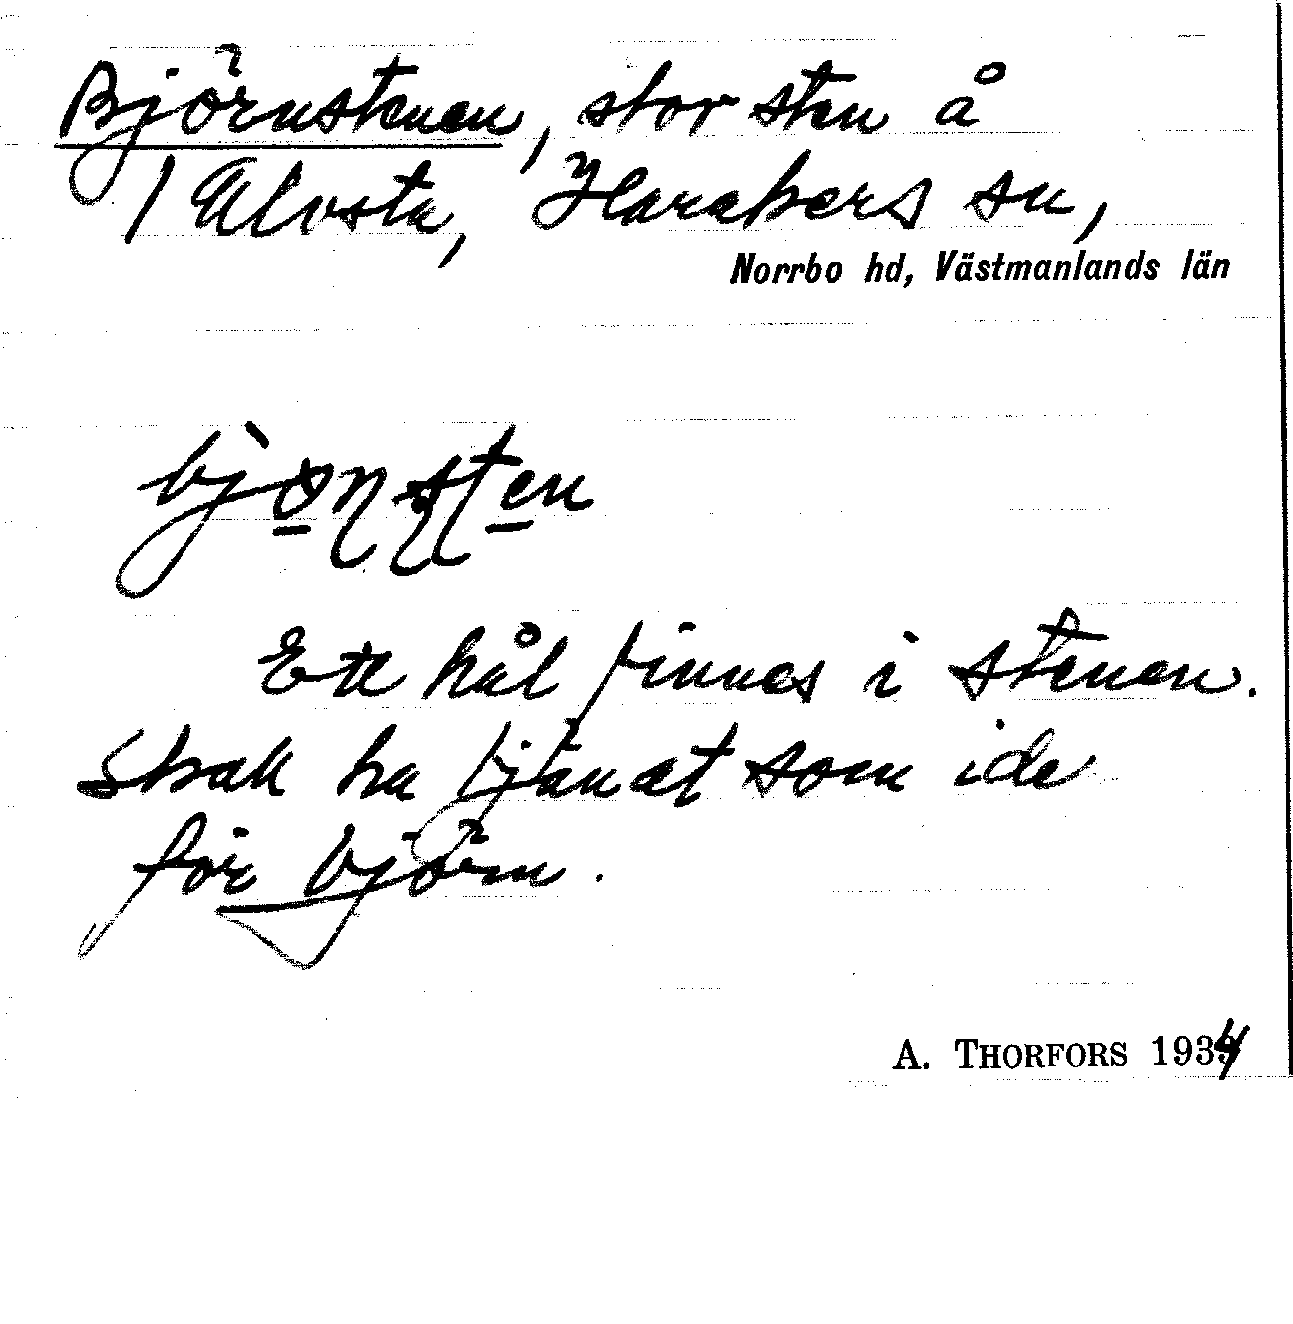 Björnstenen, stor sten å
/ Älvsta, Harakers sn,
Norrbo hd, Västmanlands län
Ett hål finnes i stenen.
Skall ha tjänat som ide
för björn.
A. THORFORS 1934